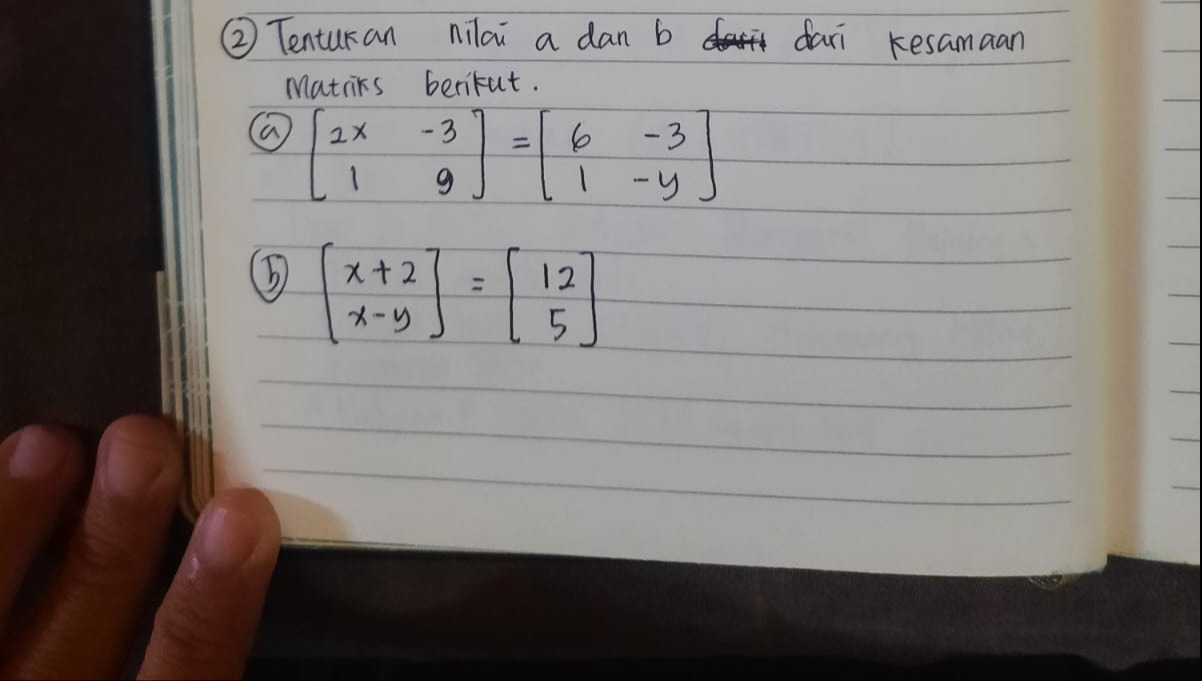 ② Tentukan nilai a dan b dari kesamaan
Matriks berikut.
ⓐ [2x -3] = [6 -3]
[1 9] [1 -y]
ⓑ [x+2] = [12]
[x-y] [5]